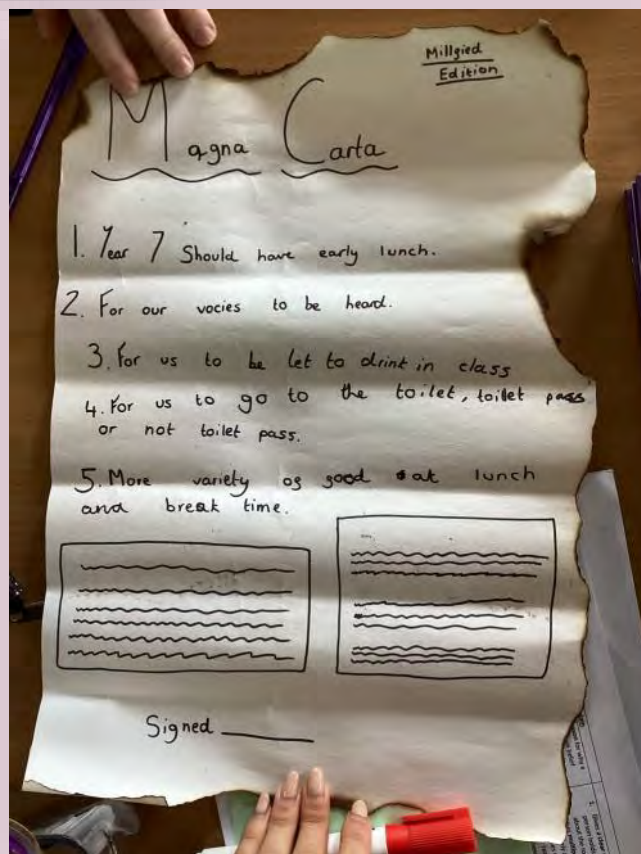 Millgied
Edition
Magna Carta
1. Year 7 Should have early lunch.
2. For our vocies to be heard.
3. For us to be let to drink in class
4. For us to go to the toilet, toilet pass
or not toilet pass.
5. More variety og good at lunch
and break time.
Signed